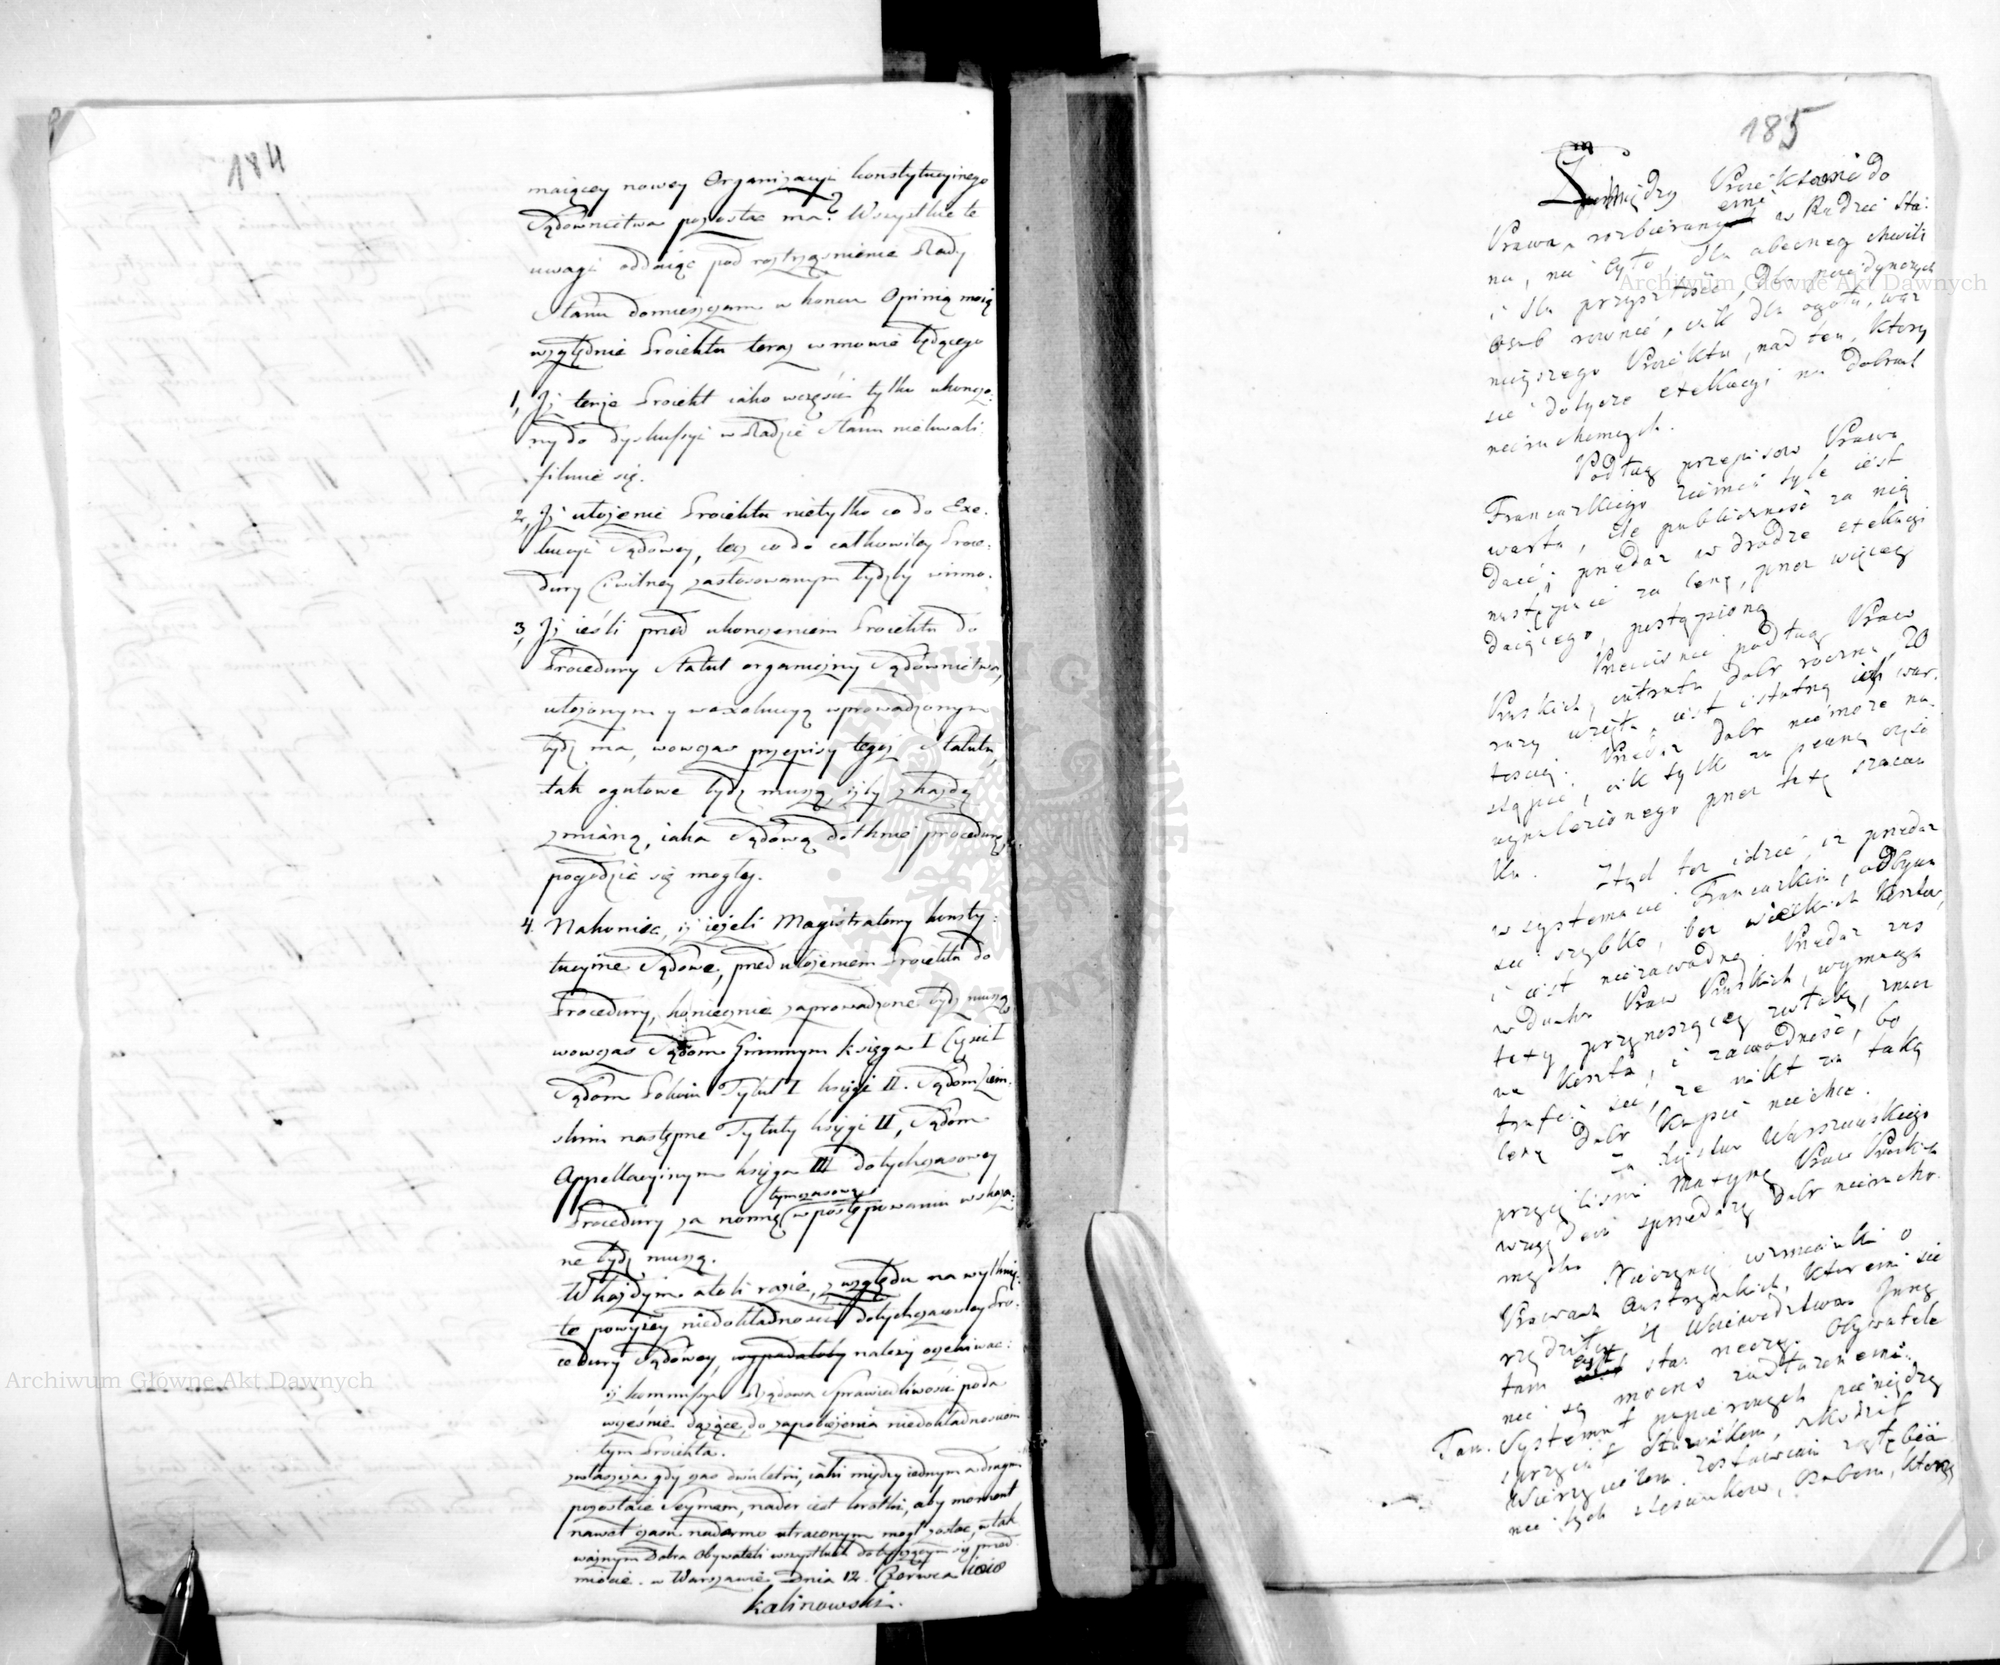 184
maiącey nowey Organizacyi konstytucyinego
Sądownictwa pozostać ma? Wszystkie te
uwagi oddaiąc pod rozstrzygnienie Rady
Stanu domieszczam w koncu Opinią moią
względnie Proiektu teraz w mowie będącego
1, Iż tenże Proiekt iako wczęści tylko ukonczo:
ny do dyskussyi w Radzie Stanu niekwali:
fikuie się.
2, Iż ułożenie Proiektu nietylko co do Exe:
kucyi Sądowey, lecz co do całkowitey Proce:
dury Cywilney zastosowanym bydźby winno.
3, Iż ieśli przed ukonczeniem Proiektu do
Procedury Statut organiczny Sądownictwa,
ułożonym y w exekucyą wprowadzonym
bydź ma, wowczas przepisy tegoż Statutu,
tak ogułowe bydź muszą, iżby z każdą
zmianą, iaka Sądową dotknie procedurę,
pogodzić się mogły.
4. Nakoniec, iż ieżeli Magistratury konsty:
tucyine Sądowe, przed ułożeniem Proiektu do
Procedury, koniecznie zaprowadzone bydź muszą
wowczas Sądom Gminnym księga I Części I
Sądom Pokoiu Tytuł I księgi II. Sądom Ziem:
skim następne Tytuły księgi II, Sądom
Appellacyinym księga III dotychczasowey
tymczasową
Procedury za normę w postępowaniu wskaza:
ne bydź muszą.
W każdym atoli razie, z względu na wytknię:
te powyżey niedokładności dotychczasowey Pro:
cedury Sądowey, wypadałoby należy oczekiwać:
iż kommissya Rządowa Sprawiedliwości poda
wcześnie dążące do zapobieżenia niedokładnosciom
tym Proiekta.
zwłaszcza gdy czas dwuletni, iaki między iednym a drugim
pozostaie Seymem, nader iest krotki, aby moment
nawet czasu nadarmo utraconym mogł zostać, w tak
ważnym Dobra Obywateli wszystkich dotyczącym się przed:
miocie. w Warszawie Dnia 12. Czerwca 1818
Kalinowski.
185
Pomiędzy Proiektami do
Prawa, rozbieranemi w Radzie Sta:
nu, nie było, dla obecney chwili
i dla przyszłości, dla poiedynczych
osob rownie, iak dla ogołu, waż
nieyszego Proiektu, nad ten, ktory
się dotycze exekucyi na dobrach
nieruchomych.
Podług przepisow Prawa
Francuzkiego ziemia tyle iest
warta, ile publiczność za nią
daie; przedaż w drodze exekucyi
następuie za cenę, przez więcey
daiącego, postąpioną
Przeciwnie podług Praw
Pruskich, intrata dobr roczna, 20
razy wzięta, iest istotną ich war:
tością. Przedaż dobr nie może na:
stąpić, iak tylko za pewną częśc
wynalezionego przez taxę szacun
ku. Ztąd też idzie, iż przedaż
w systemacie Francuzkim, odbywa
się szybko, bez wielkich kosztow,
i iest niezawodną. Przedaż zaś
w duchu Praw Pruskich, wymaga
taxy, przynoszącey zwłokę, znacz
ne koszta, i zawodność, bo
trafi się, że nikt za taką
cenę Dobr kupić nie chce.
za Xięstwa Warszawskiego
przyięliśmy Maxymę Praw Pruskich
względem sprzedaży dobr nierucho:
mych. Nieczynię wzmianki o
Prawach Austryackich, ktoremi się
rządziły 4 Woiewództwa. Inny
tam iest stan rzeczy. Obywatele
nie są mocno zadłużeni.
Tam. Systemat papierowych pieniędzy
sprzyiał dłużnikom, szkodził
Wierzycielom. Zostawiam zgłębiä
nie tych stosunkow, osobom, ktore